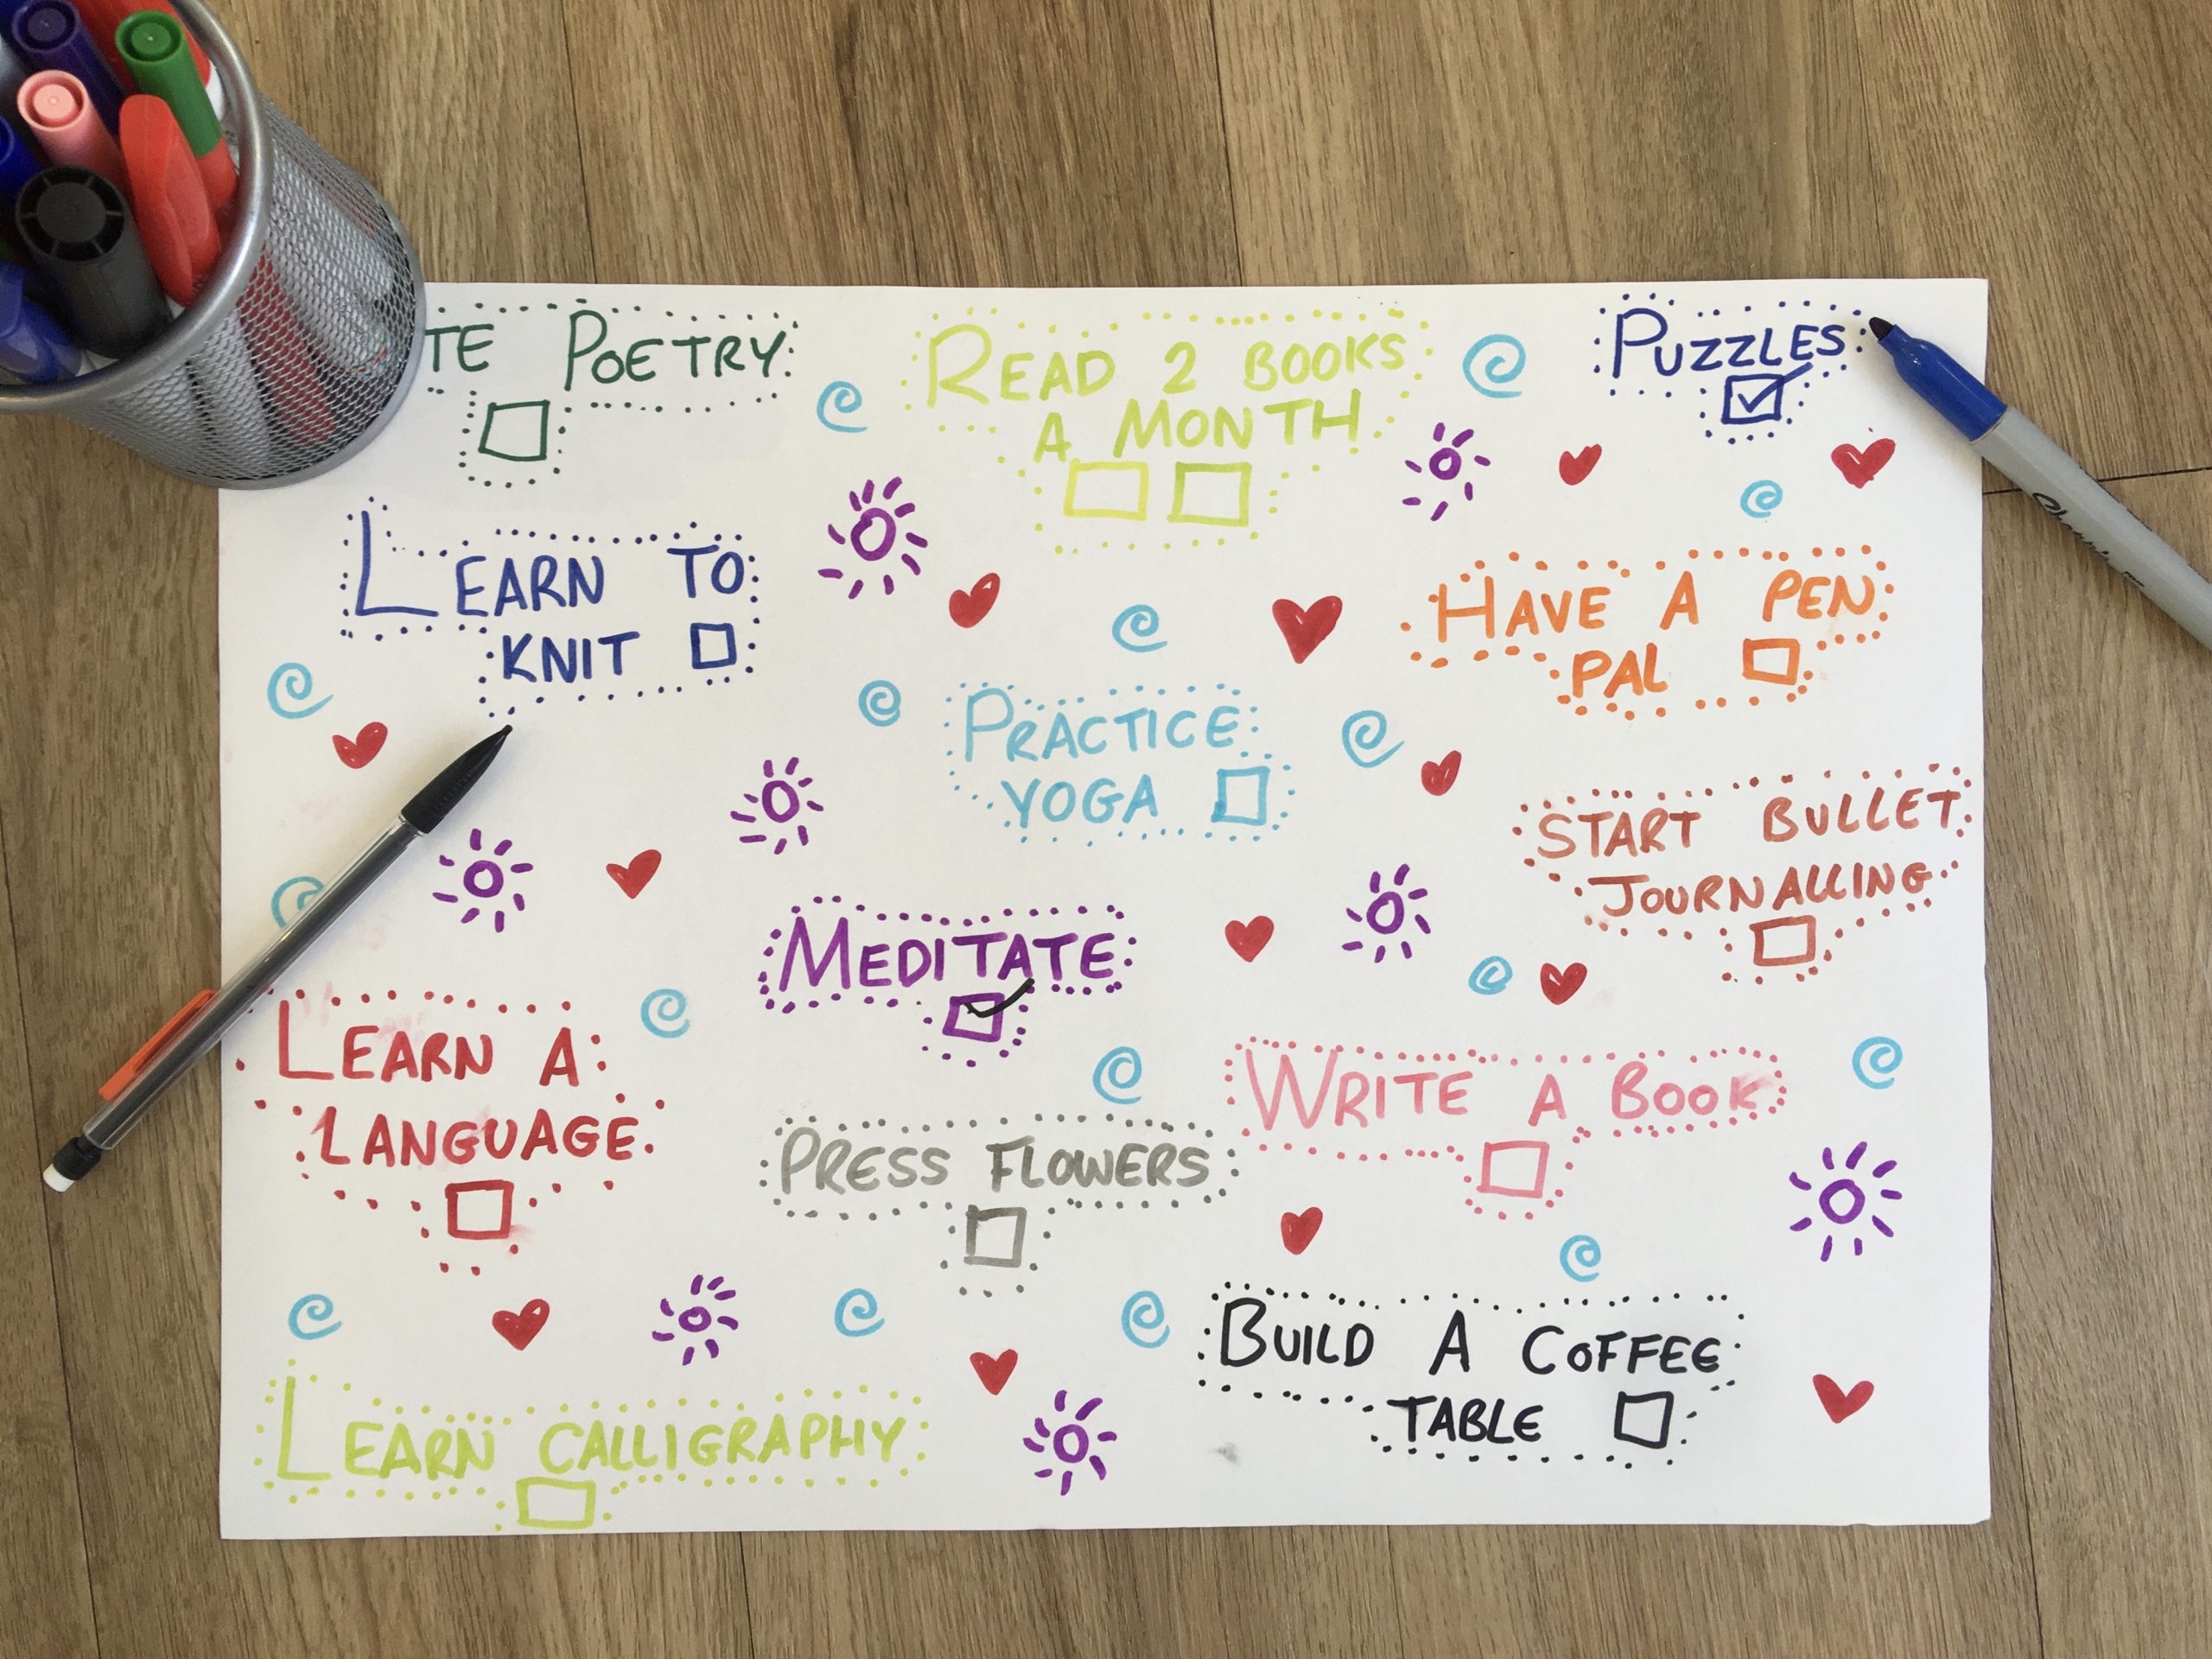 TE POETRY
READ 2 BOOKS
A MONTH
PUZZLES
LEARN TO
KNIT
HAVE A PEN
PAL
PRACTICE
YOGA
START BULLET
JOURNALLING
MEDITATE
LEARN A
LANGUAGE
WRITE A BOOK
PRESS FLOWERS
BUILD A COFFEE
TABLE
LEARN CALLIGRAPHY
Sharpie